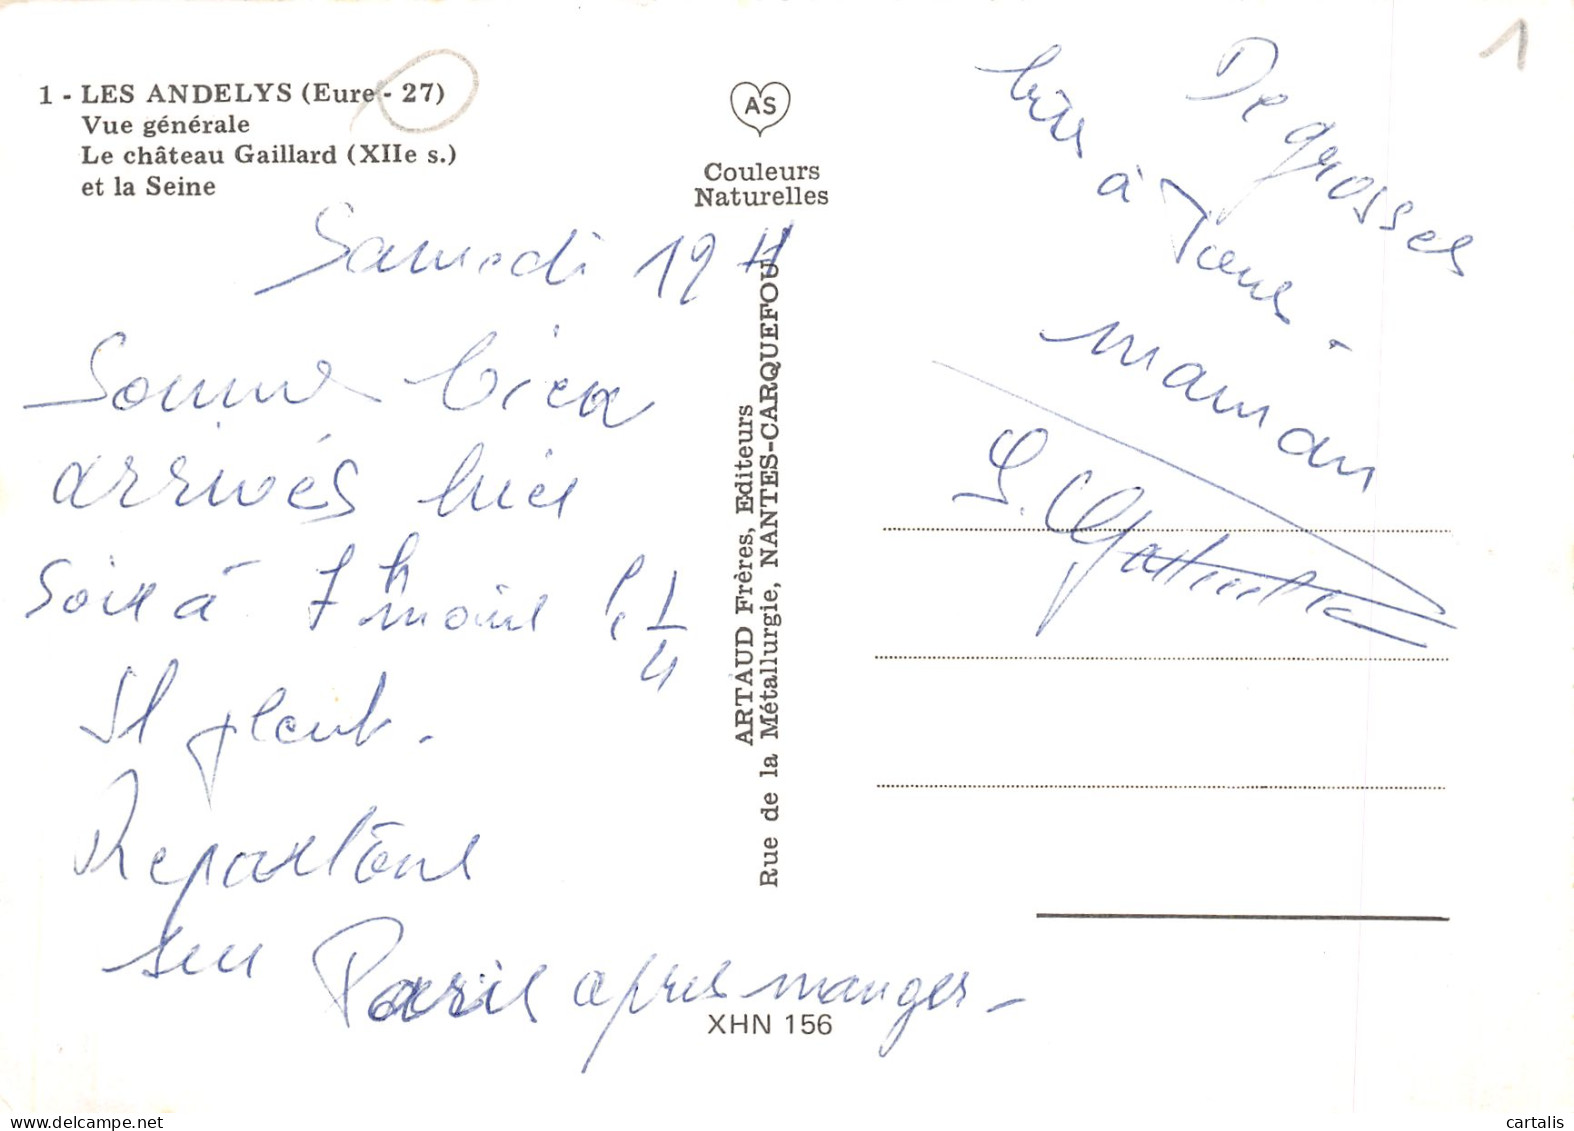 1 - LES ANDELYS (Eure - 27)
Vue générale
Le château Gaillard (XIIe s.)
et la Seine
AS
Couleurs
Naturelles
ARTAUD Frères, Editeurs
Rue de la Métallurgie, NANTES-CARQUEFOU
Samedi 19 H
Somme bien
arrivés hier
soir à 7h moins 1/4
Il pleut.
Repartons
sur Paris après manger -
De grosses
bises à Tous -
maman
XHN 156
1
cartalis